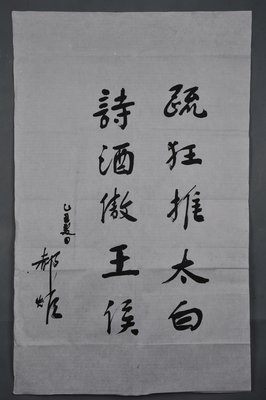 疏狂推太白
詩酒傲王侯
乙酉夏日